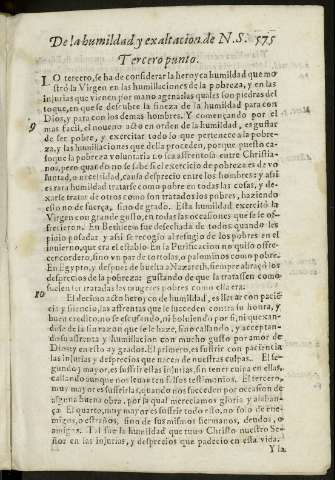 De la humildad y exaltacion de N. S. 575
Tercero punto.
LO tercero, se ha de considerar la heroyca humildad que mo-
strò la Virgen en las humillaciones de la pobreza, y en las
injurias que vienen por mano agena, las quales son piedras del
toque, en que se descubre la fineza de la humildad para con
Dios, y para con los demas hombres. Y començando por el
9 mas facil, el noveno acto en orden de la humildad, es gustar
de ser pobre, y exercitar todo lo que pertenece à la pobre-
za, y las humillaciones que della proceden, porque puesto ca-
so que la pobreza voluntaria no sea afrentosa entre Christia-
nos, pero quando no se sabe si el exercicio de pobreza es de vo-
luntad, o necessidad, causa desprecio entre los hombres y assi
es rara humildad tratarse como pobre en todas las cosas, y de-
xarse tratar de otros como son tratados los pobres, haziendo
esto no de fuerça, sino de grado. Esta humildad exercitò la
Virgen con grande gusto, en todas las ocasiones que se le of-
frecieron. En Bethleem fue desechada de todos quando les
pidio posada: y assi se recogio al refugio de los pobres en el
invierno, que era el establo. En la Purificacion no quiso offre-
cer cordero, sino un par de tortolas, o palominos como pobre.
En Egypto, y despues de buelta à Nazareth, siempre abraçò los
desprecios de la pobreza: gustando de que la tratassen como
suelen ser tratadas las mugeres pobres como ella era:
10 El decimo acto heroyco de humildad, es llevar con pacié-
cia y silencio, las afrentas que le suceden contra su honra, y
buen credito, no se escusando, ni bolviendo por si, ni quexan-
dose de la sin razon que se le haze, sino callando, y acceptan-
do su afrenta y humillacion con mucho gusto por amor de
Dios, y en esto ay grados. El primero, es sufrir con paciencia
las injurias y desprecios que nacen de nuestras culpas. El se-
gundo y mayor, es sufrir estas injurias, sin tener culpa en ellas,
callando aunque nos levanten falsos testimonios. El tercero,
muy mayor es sufrirlas, quando nos suceden por occasion de
alguna buena obra, por la qual mereciamos gloria y alaban-
ça. El quarto, muy mayor es sufrir todo esto, no solo de ene-
migos, o estraños, sino de sus mismos hermanos, deudos, o
amigos. Tal fue la humildad que tuvo Christo nuestro Se-
ñor en las injurias, y desprecios que padecio en esta vida.
Y la